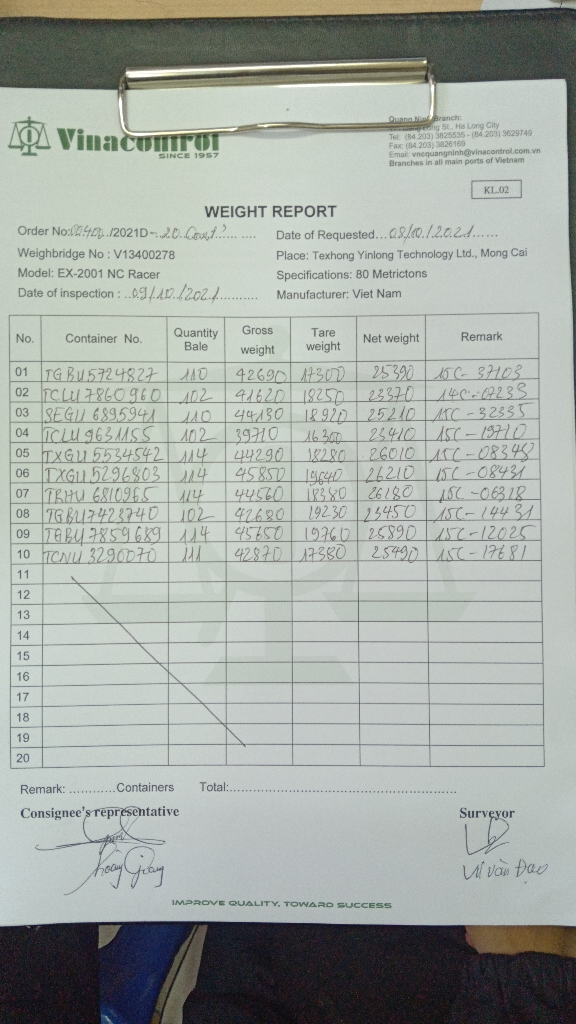 Vinacontrol
SINCE 1957
Branch:
St., Ha Long City
Tel: (84.203) 3825535 - (84.203) 3629749
Fax: (84.203) 3826169
Email: vncquangninh@vinacontrol.com.vn
Branches in all main ports of Vietnam
KL.02
WEIGHT REPORT
Order No: /2021D - 20 Cont's
Date of Requested...08/10/2021......
Weighbridge No : V13400278
Place: Texhong Yinlong Technology Ltd., Mong Cai
Model: EX-2001 NC Racer
Specifications: 80 Metrictons
Date of inspection : ..09/10/2021...........
Manufacturer: Viet Nam
No. Container No. Quantity Bale Gross weight Tare weight Net weight Remark
01 TGBU5724827 110 42690 17300 25390 15C-37103
02 TCLU7860960 102 41620 18250 23370 14C-07233
03 SEGU6895941 110 44130 18920 25210 15C-32335
04 TCLU9631155 102 39710 16300 23410 15C-19710
05 TXGU5534542 114 44290 18280 26010 15C-08348
06 TXGU5296803 114 45850 19640 26210 15C-08431
07 TRHU6810965 114 44560 18380 26180 15C-06318
08 TGBU7423740 102 42680 19230 23450 15C-14431
09 TGBU7859689 114 45650 19760 25890 15C-12025
10 TCNU3290070 111 42870 17380 25490 15C-17681
11
12
13
14
15
16
17
18
19
20
Remark: ............Containers Total:..........................................................
Consignee's representative
Surveyor
Hoàng Giang
Vi Văn Đạo
IMPROVE QUALITY, TOWARD SUCCESS